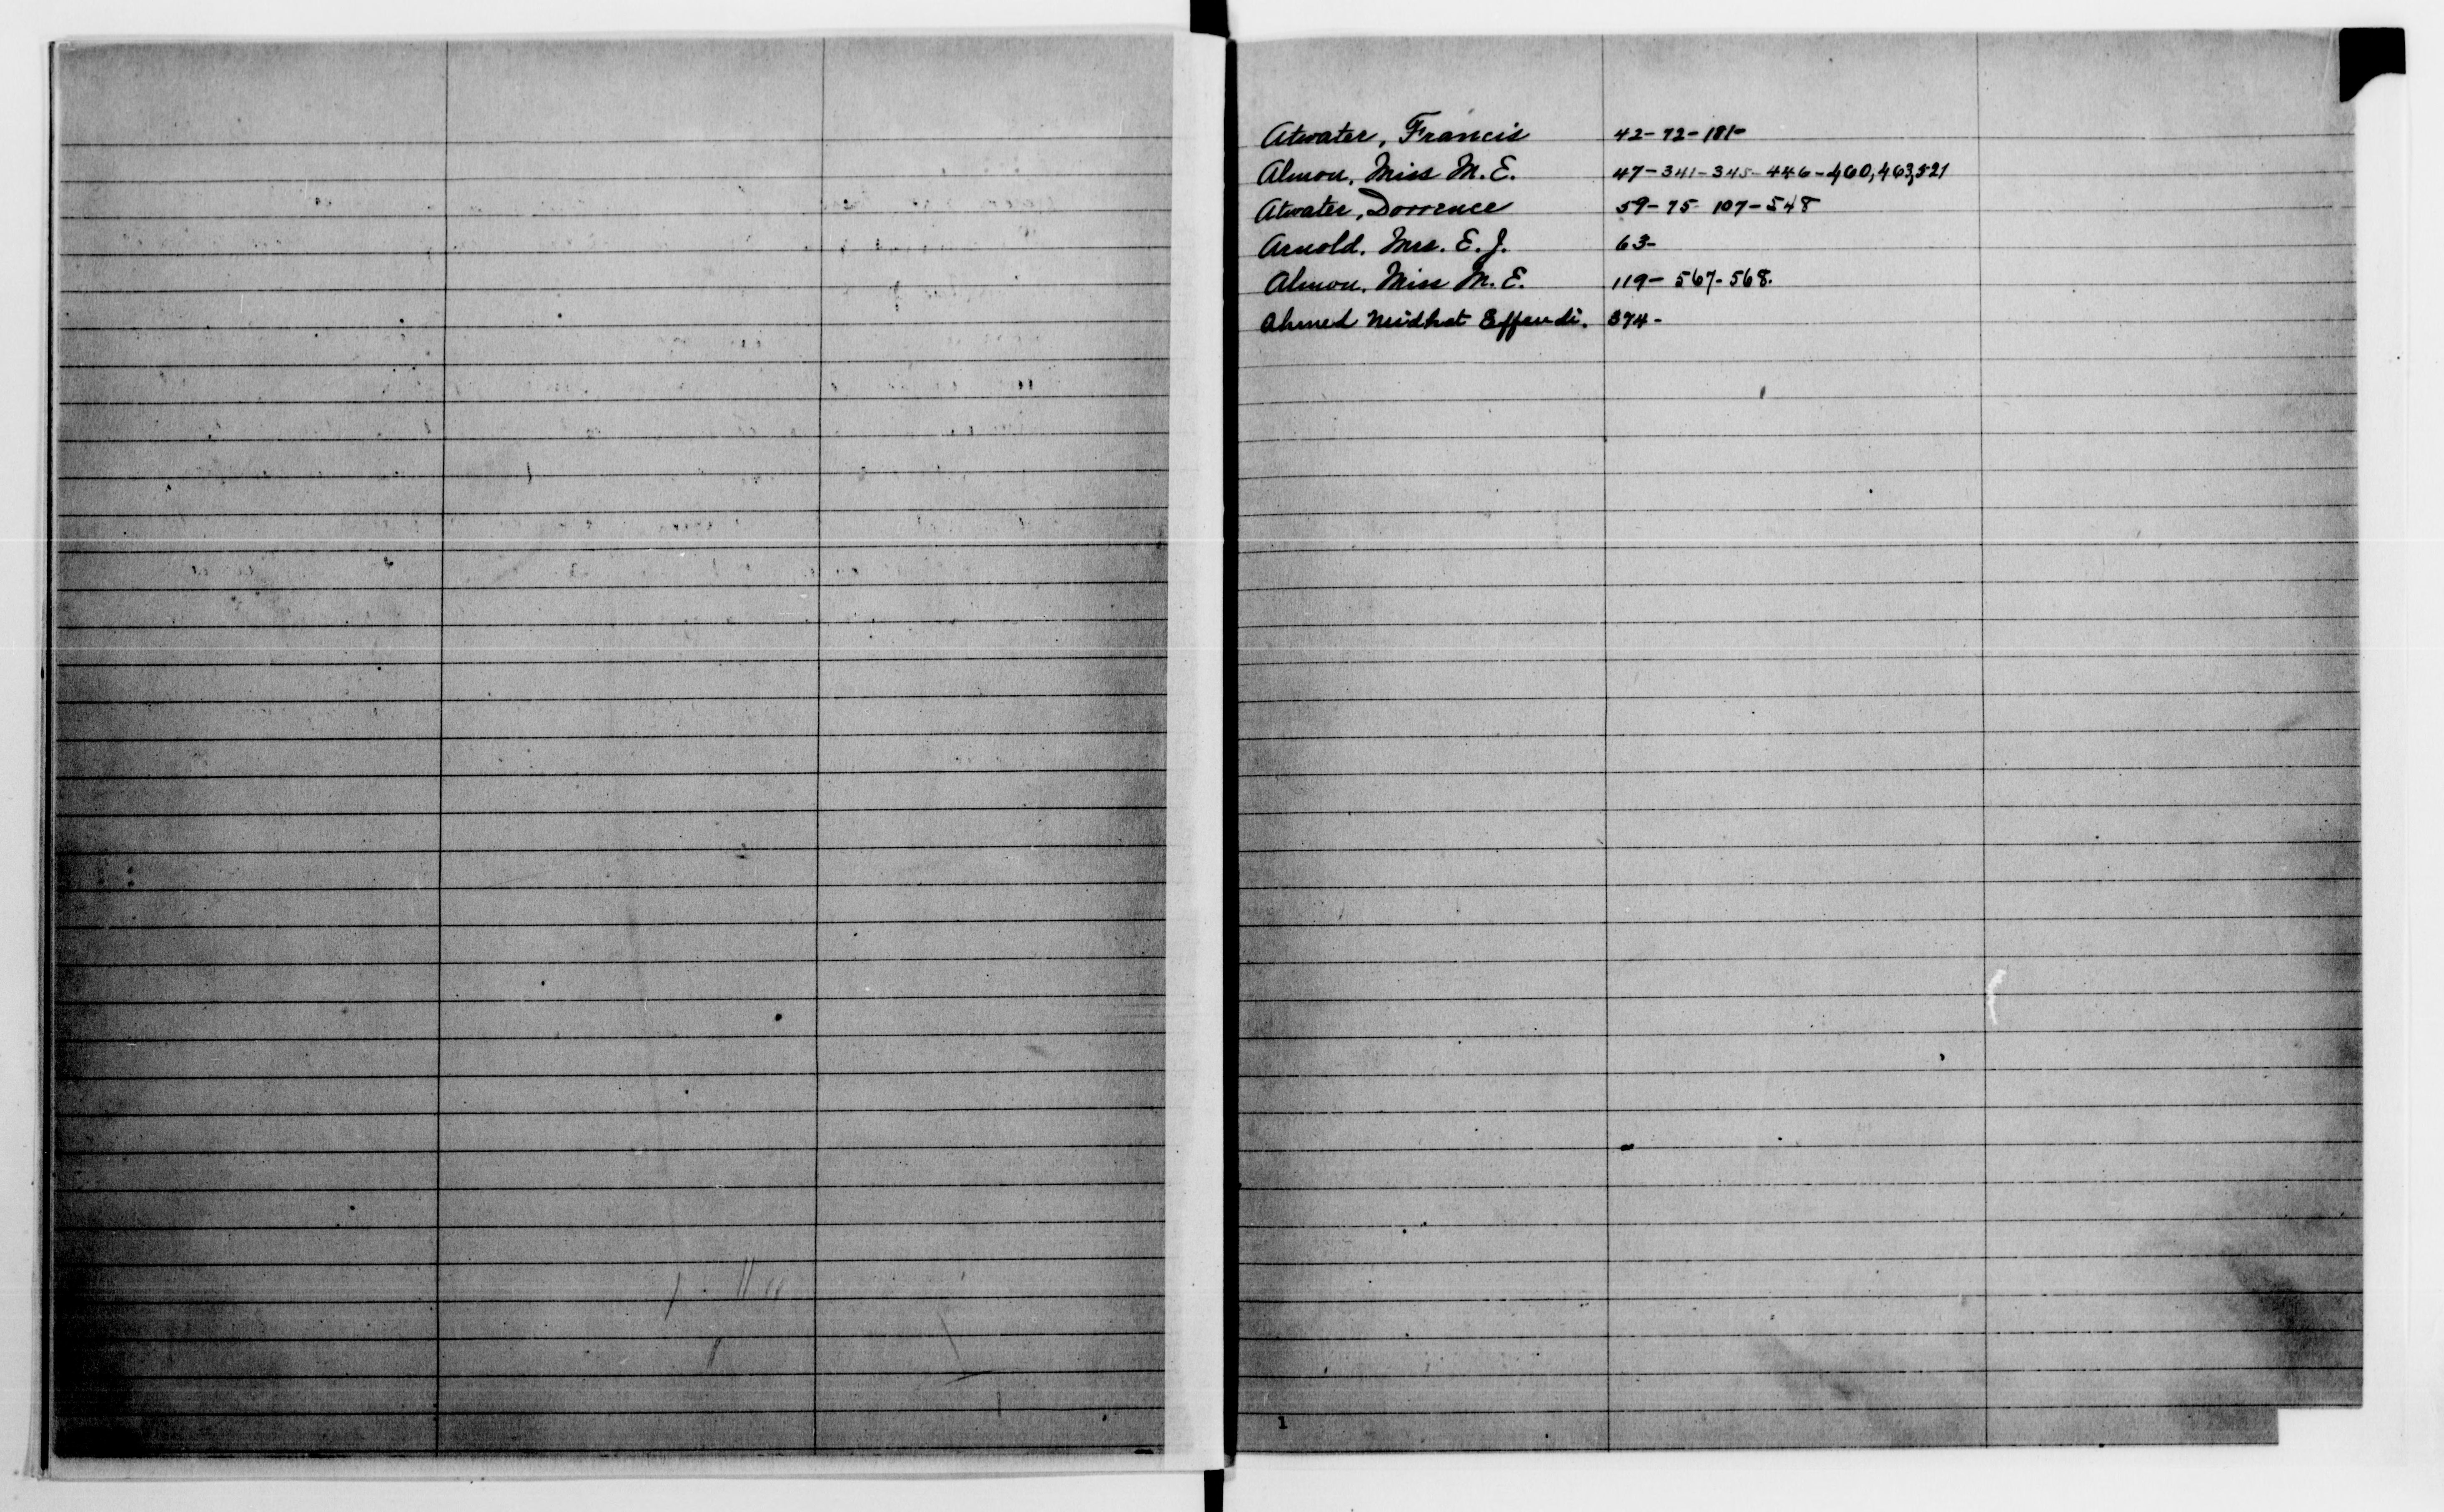 Atwater, Francis 42-72-181-
Almon, Miss M.E. 47-341-345-446-460,463,521
Atwater, Dorrence 59-75-107-548
Arnold, Mrs. E.J. 63-
Almon, Miss M.E. 119-567-568.
Ahmed Midhat Effendi. 374-
1